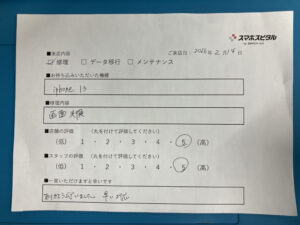 スマホスピタル
■来店内容
ご来店日: 2026年2月14日
☑修理 □データ移行 □メンテナンス
■お持ち込みいただいた機種
iphone 13
■修理内容
画面交換
■店舗の評価 (丸を付けて評価してください)
(低) 1 ・ 2 ・ 3 ・ 4 ・ 5 (高)
■スタッフの評価 (丸を付けて評価してください)
(低) 1 ・ 2 ・ 3 ・ 4 ・ 5 (高)
■一言いただけますと幸いです
ありがとうございました 早い対応